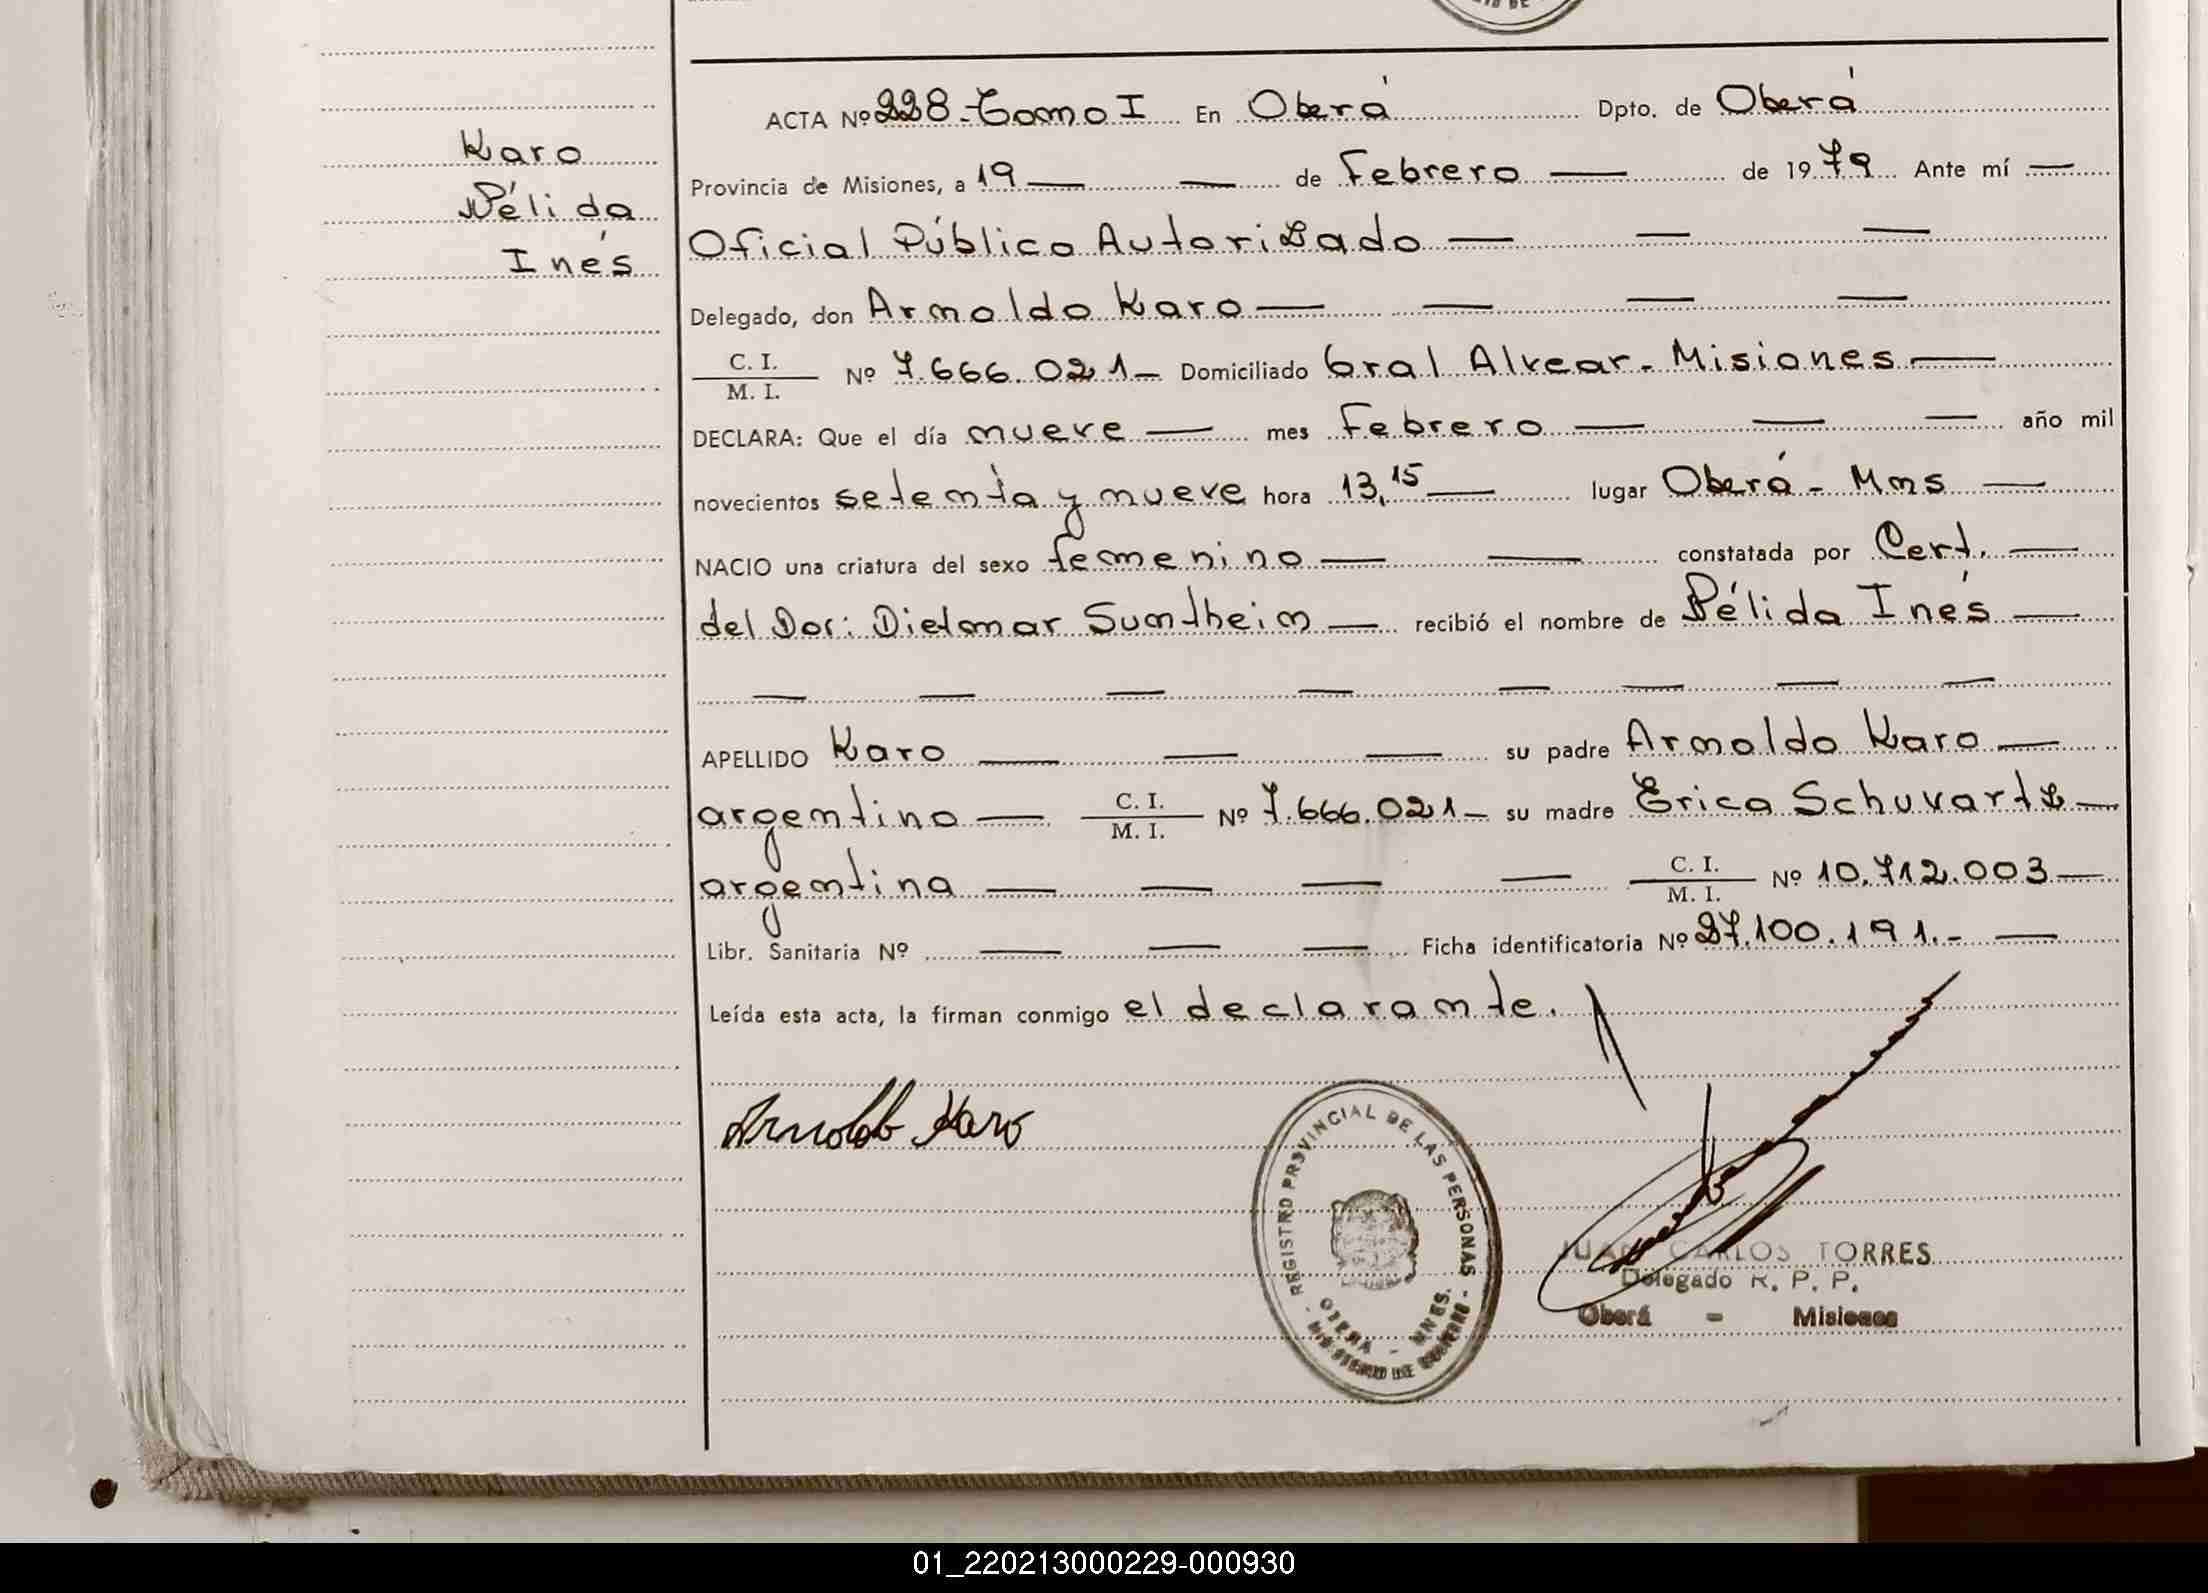 Karo
Nélida
Inés
ACTA Nº 228 - Tomo I En Oberá Dpto. de Oberá
Provincia de Misiones, a 19 — — de Febrero — de 1979 Ante mí —
Oficial Público Autorizado — — —
Delegado, don Arnoldo Karo — — — —
C. I.
M. I. Nº 7.666.021 — Domiciliado Gral Alvear - Misiones —
DECLARA: Que el día nueve — mes Febrero — — — año mil
novecientos setenta y nueve hora 13,15 — lugar Oberá - Mns —
NACIO una criatura del sexo femenino — — constatada por Cert. —
del Dor: Dietmar Sumtheim — recibió el nombre de Nélida Inés —
— — — — — — — —
APELLIDO Karo — — — su padre Arnoldo Karo —
argentino — C. I.
M. I. Nº 7.666.021 — su madre Erica Schuvartz —
argentina — — — — C. I.
M. I. Nº 10.712.003 —
Libr. Sanitaria Nº — — — Ficha identificatoria Nº 27.100.191.- —
Leída esta acta, la firman conmigo el declarante.
Arnoldo Karo
REGISTRO PROVINCIAL DE LAS PERSONAS
OBERA - MNES.
- MINISTERIO DE GOBIERNO -
JUAN CARLOS TORRES
Delegado R. P. P.
Oberá - Misiones
01_220213000229-000930